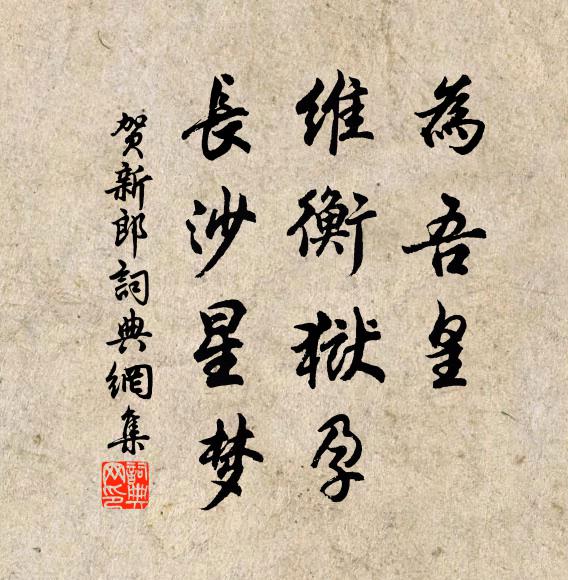 為吾皇
維衡獄孕
長沙星梦
贺新郎詞典網集
詞典网印